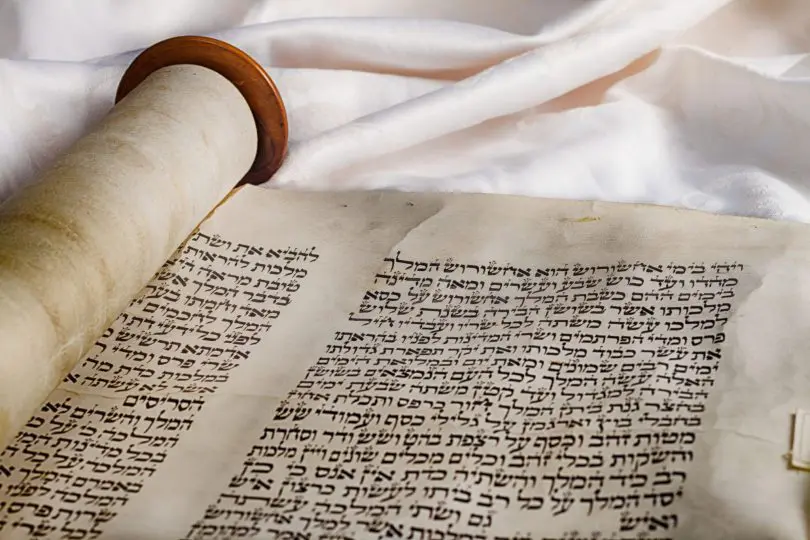 ויהי בימי אחשורוש הוא אחשורוש המלך
מהדו ועד כוש שבע ועשרים ומאה מדינה
בימים ההם כשבת המלך אחשורוש על כסא
מלכותו אשר בשושן הבירה בשנת שלוש
למלכו עשה משתה לכל שריו ועבדיו חיל
פרס ומדי הפרתמים ושרי המדינות לפניו בהראתו
את עשר כבוד מלכותו ואת יקר תפארת גדולתו
ימים רבים שמונים ומאת יום ובמלואת הימים
האלה עשה המלך לכל העם הנמצאים בשושן
הבירה למגדול ועד קטן משתה שבעת ימים
בחצר גנת ביתן המלך חור כרפס ותכלת אחוז
בחבלי בוץ וארגמן על גלילי כסף ועמודי שש
מטות זהב וכסף על רצפת בהט ושש ודר וסחרת
והשקות בכלי זהב וכלים מכלים שונים ויין מלכות
רב כיד המלך והשתיה כדת אין אנס כי כן
יסד המלך על כל רב ביתו לעשות כרצון איש
ואיש גם ושתי המלכה עשתה
מלכות אשר למלך אחשורוש
להביא את ושתי
מלכות להראות
טובת מראה היא
בדבר המלך אשר
מאד וחמתו בערה
המלך
לפני כל ידעי דת
אדמתא תרשיש
שרי פרס ומדי
במלכות
אשר לא עשתה
הסריסים
המלך והשרים לא
המלכה כי על כל
כל מדינות המלך
המלכה על כל
באמרם המלך
המלכה לפניו
שרות
לכל שרי